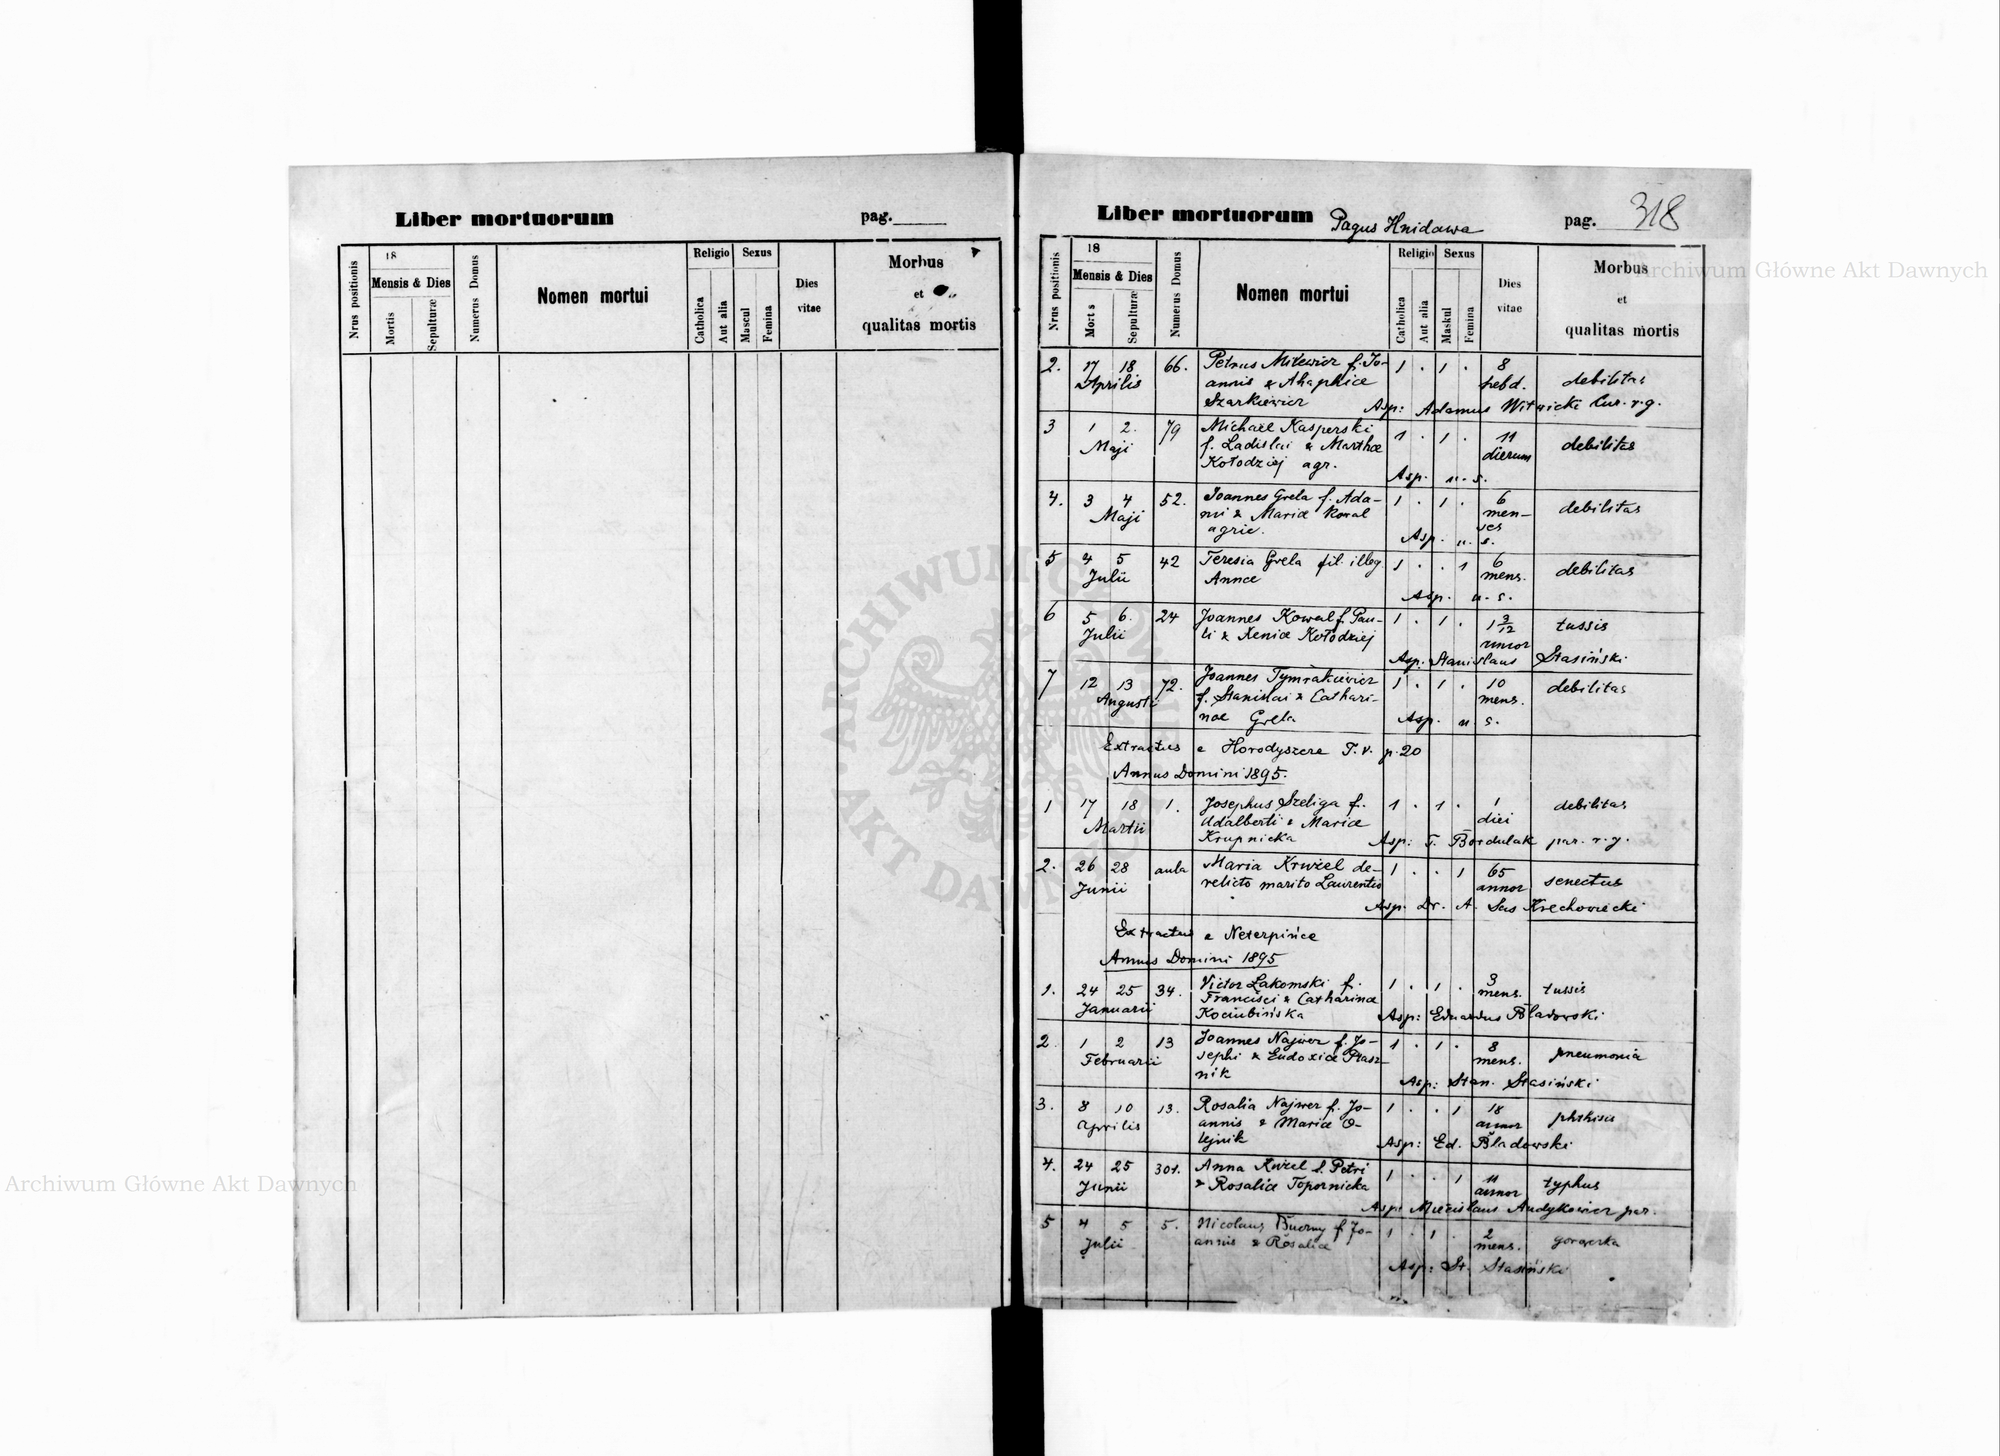 Liber mortuorum pag.
Nrus positionis
18
Mensis & Dies
Mortis
Sepulturæ
Numerus Domus
Nomen mortui
Religio
Catholica
Aut alia
Sexus
Mascul
Femina
Dies
vitae
Morbus
et
qualitas mortis
Liber mortuorum Pagus Hnidawa pag. 318
Nrus positionis
18
Mensis & Dies
Mort s
Sepulturæ
Numerus Domus
Nomen mortui
Religio
Catholica
Aut alia
Sexus
Maskul
Femina
Dies
vitae
Morbus
et
qualitas mortis
2. 17 18 66. Petrus Milewicz f. Jo- 1 . 1 . 8
Aprilis annis & Ahaphiæ hebd. debilitas
Szarkiewicz Asp: Adamus Witwicki Cur. r.g.
3 1 2. 79 Michael Kasperski 1 . 1 . 11
Maji f. Ladislai & Marthæ dierum debilitas
Kołodziej agr. Asp. u. s.
4. 3 4 52. Joannes Grela f. Ada- 1 . 1 . 6 debilitas
Maji mi & Mariæ Kowal men-
agric. ses
Asp. u. s.
5 4 5 42 Teresia Grela fil. illeg. 1 . . 1 6 debilitas
Julii Annæ mens.
Asp. u. s.
6 5 6. 24 Joannes Kowal f. Pau- 1 . 1 . 1 3/12 tussis
Julii li & Xeniæ Kołodziej annor
Asp: Stanislaus Stasiński
7 12 13 72. Joannes Tymrakiewicz 1 . 1 . 10 debilitas
Augusti f. Stanislai & Cathari- mens.
nae Grela Asp. u. s.
Extractus e Horodyszcze T. V. p. 20
Annus Domini 1895.
1 17 18 1. Josephus Szeliga f. 1 . 1 . 1 debilitas
Martii Adalberti & Mariæ diei
Krupnicka Asp: T. Bordulak par. r. g.
2. 26 28 aula Maria Krużel de- 1 . . 1 65
Junii relicto marito Laurentio annor senectus
Asp. Dr. A. Sas Krechowiecki
Extractus e Neterpińce
Annus Domini 1895
1. 24 25 34. Victor Łakomski f. 1 . 1 . 3 tussis
Januarii Francisci & Catharinæ mens.
Kociubińska Asp: Eduardus Bładowski
2 1 2 13 Joannes Najwer f. Jo- 1 . 1 . 8
Februarii sephi & Eudoxiæ Ptasz mens. pneumonia
nik Asp: Stan. Stasiński
3. 8 10 13. Rosalia Najwer f. Jo- 1 . . 1 18
Aprilis annis & Mariæ O- annor phthisis
lejnik Asp: Ed. Bładowski
4. 24 25 301. Anna Krużel f. Petri 1 . . 1 11
Junii & Rosaliæ Topornicka annor typhus
Asp: Miecislaus Audykowicz par.
5 4 5 5. Nicolaus Buczny f. Jo- 1 . 1 . 2
Julii annis & Rosaliæ mens. gorączka
Asp: St. Stasiński
Archiwum Główne Akt Dawnych
Archiwum Główne Akt Dawnych
ARCHIWUM GŁÓWNE
AKT DAWNYCH